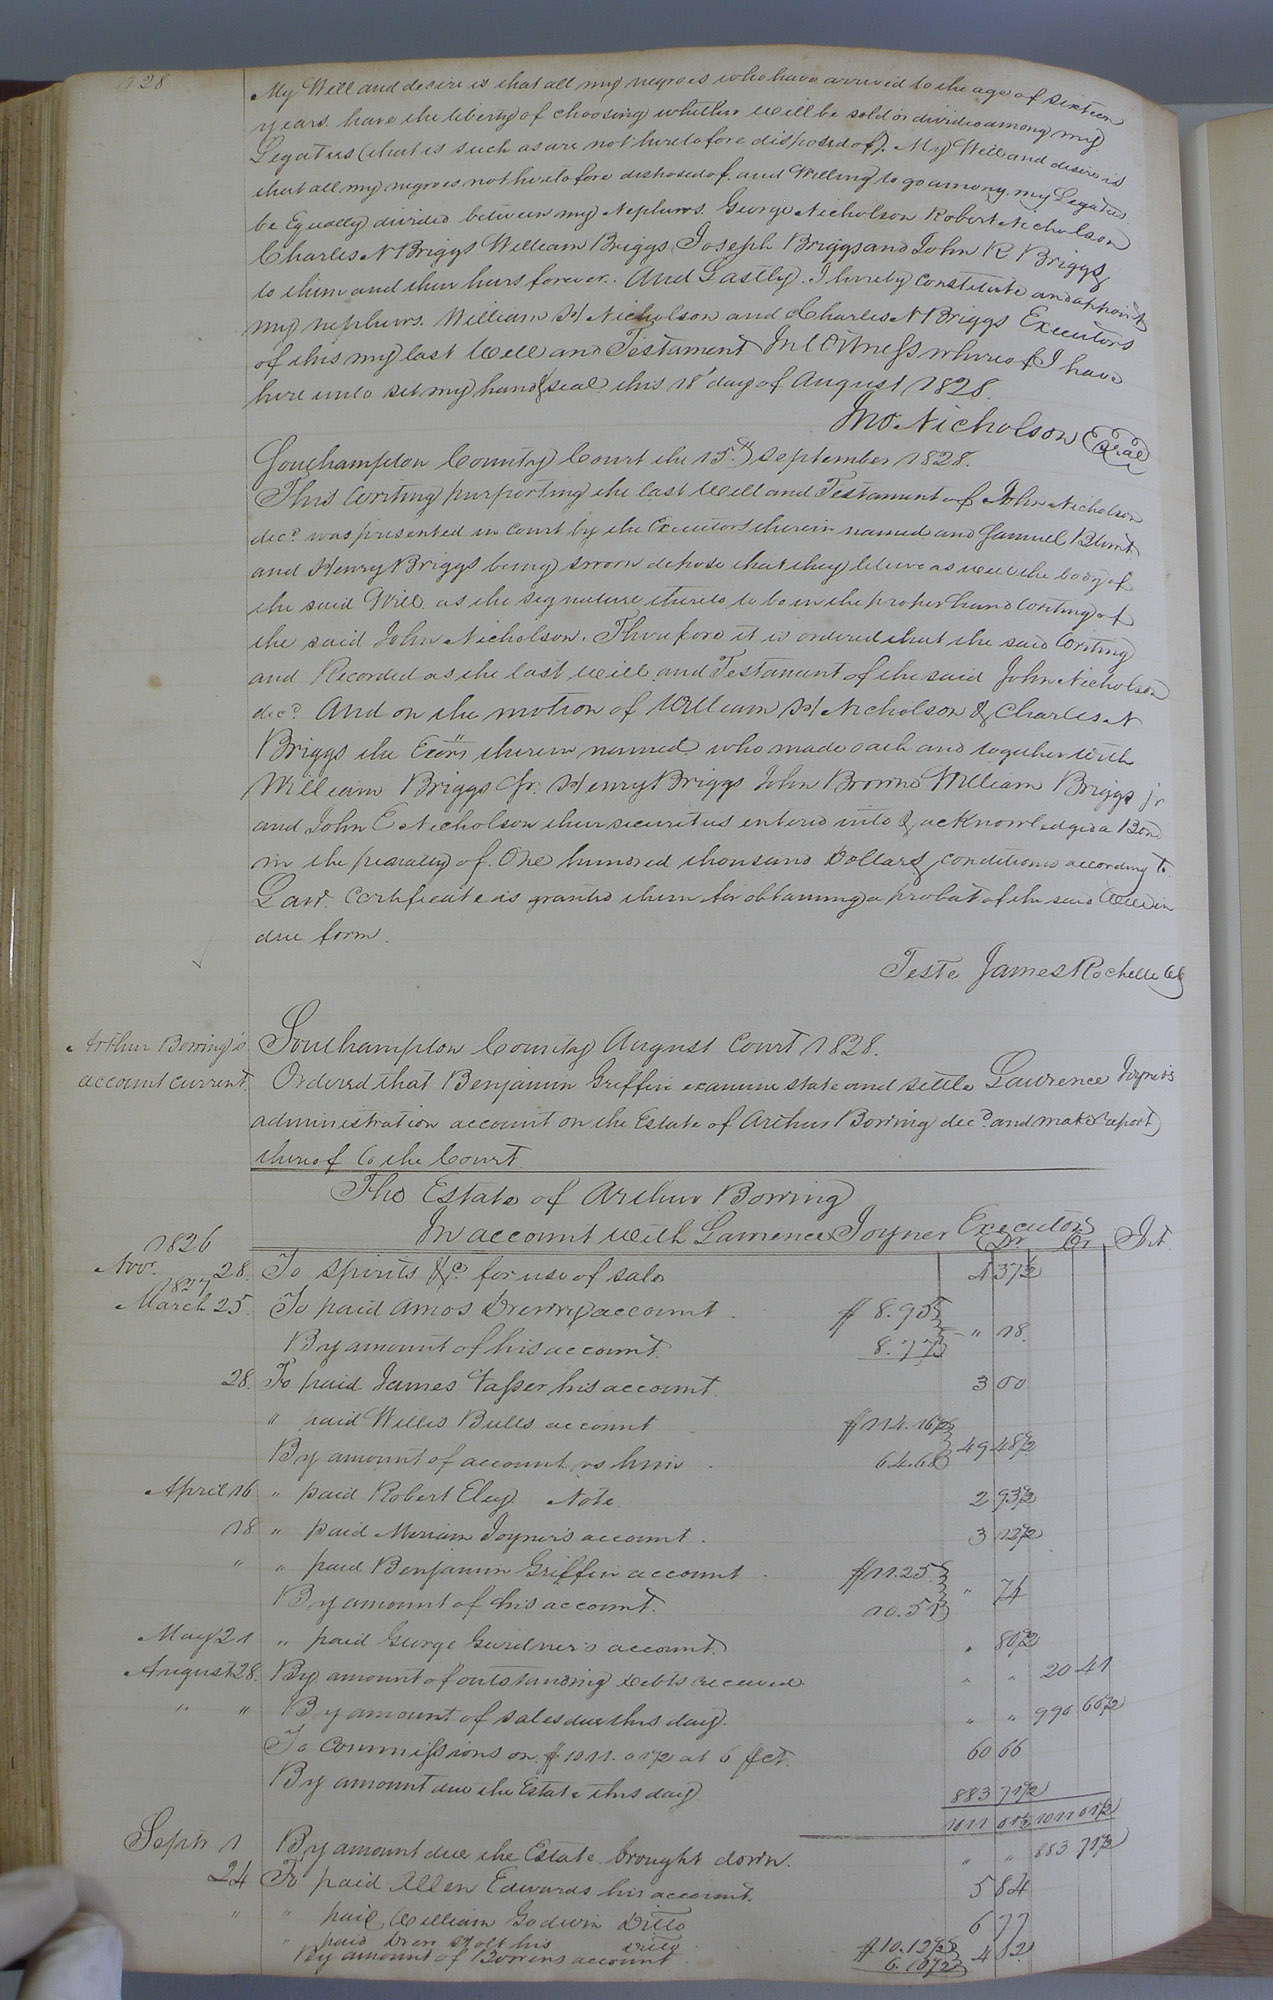 128
My Will and desire is that all my negroes who have arrived to the age of Sixteen
years have the liberty of choosing whether will be sold or divided among my
Legatees (that is such as are not heretofore disposed of). My Will and desire is
that all my negroes not heretofore disposed of and Willing to go among my Legatees
be Equally divided between my Nephews. George Nicholson Robert Nicholson
Charles N Briggs William Briggs Joseph Briggs and John R Briggs
to them and their heirs forever. And Lastly. I hereby constitute and appoint
my nephews. William H Nicholson and Charles N Briggs Executors
of this my last Will and Testament In Witness whereof I have
here unto set my hand & seal this 18' day of August 1828.
Jno. Nicholson Seal
Southampton County Court the 15th September 1828.
This Writing purporting the last Will and Testament of John Nicholson
decd was presented in Court by the Executors therein named and Samuel Blunt
and Henry Briggs being sworn depose that they believe as well the body of
the said Will as the signature thereto to be in the proper hand Writing of
the said John Nicholson. Therefore it is ordered that the said Writing
and Recorded as the last Will and Testament of the said John Nicholson
decd. And on the motion of William H Nicholson & Charles N
Briggs the Exors therein named who made oath and together with
William Briggs Sr. Henry Briggs John Brown William Briggs jr
and John C Nicholson their securities entered into & acknowledged a Bond
in the penalty of One hundred thousand Dollars conditioned according to
Law. Certificate is granted them for obtaining a probat of the said Will in
due form.
Teste James Rochelle Clk
Arthur Bowing's
account current
Southampton County August Court 1828.
Ordered that Benjamin Griffin examine state and settle Lawrence Joyner's
administration account on the Estate of Arthur Bowing decd and make report
thereof to the Court
The Estate of Arthur Bowing
In account with Lawrence Joyner Executor
Dr Cr
1826
Novr. 28. To Spirits &c. for use of sale 4 37½
1827
March 25. To paid Amos Drewry account $8.95
By amount of his account 8.77 " 18.
28. To paid James Vasser his account. 3 00
" paid Willis Bulls account $114.16½
By amount of account vs him 64.68 49 48½
April 16 " paid Robert Eley Note. 2 93½
18 " paid Miriam Joyner's account. 3 12½
" " paid Benjamin Griffin account $11.25
By amount of his account. 10.51 " 74
May 21 " paid George Gurdner's account. " 80½
August 28. By amount of outstanding debts received " " 20 41
" " By amount of sales due this day. " " 990 60½
To Commissions on $1011.01½ at 6 Pct. 60 66
By amount due the Estate this day 883 71½
1011 01½ 1011 01½
Septr 1 By amount due the Estate brought down. " " 883 71½
24 To paid Allen Edwards his account. 5 84
" " paid William Godwin Ditto 6 77
" paid Drew Holt his Ditto $10.12½
By amount of Bowers account 6.10½ 4 02